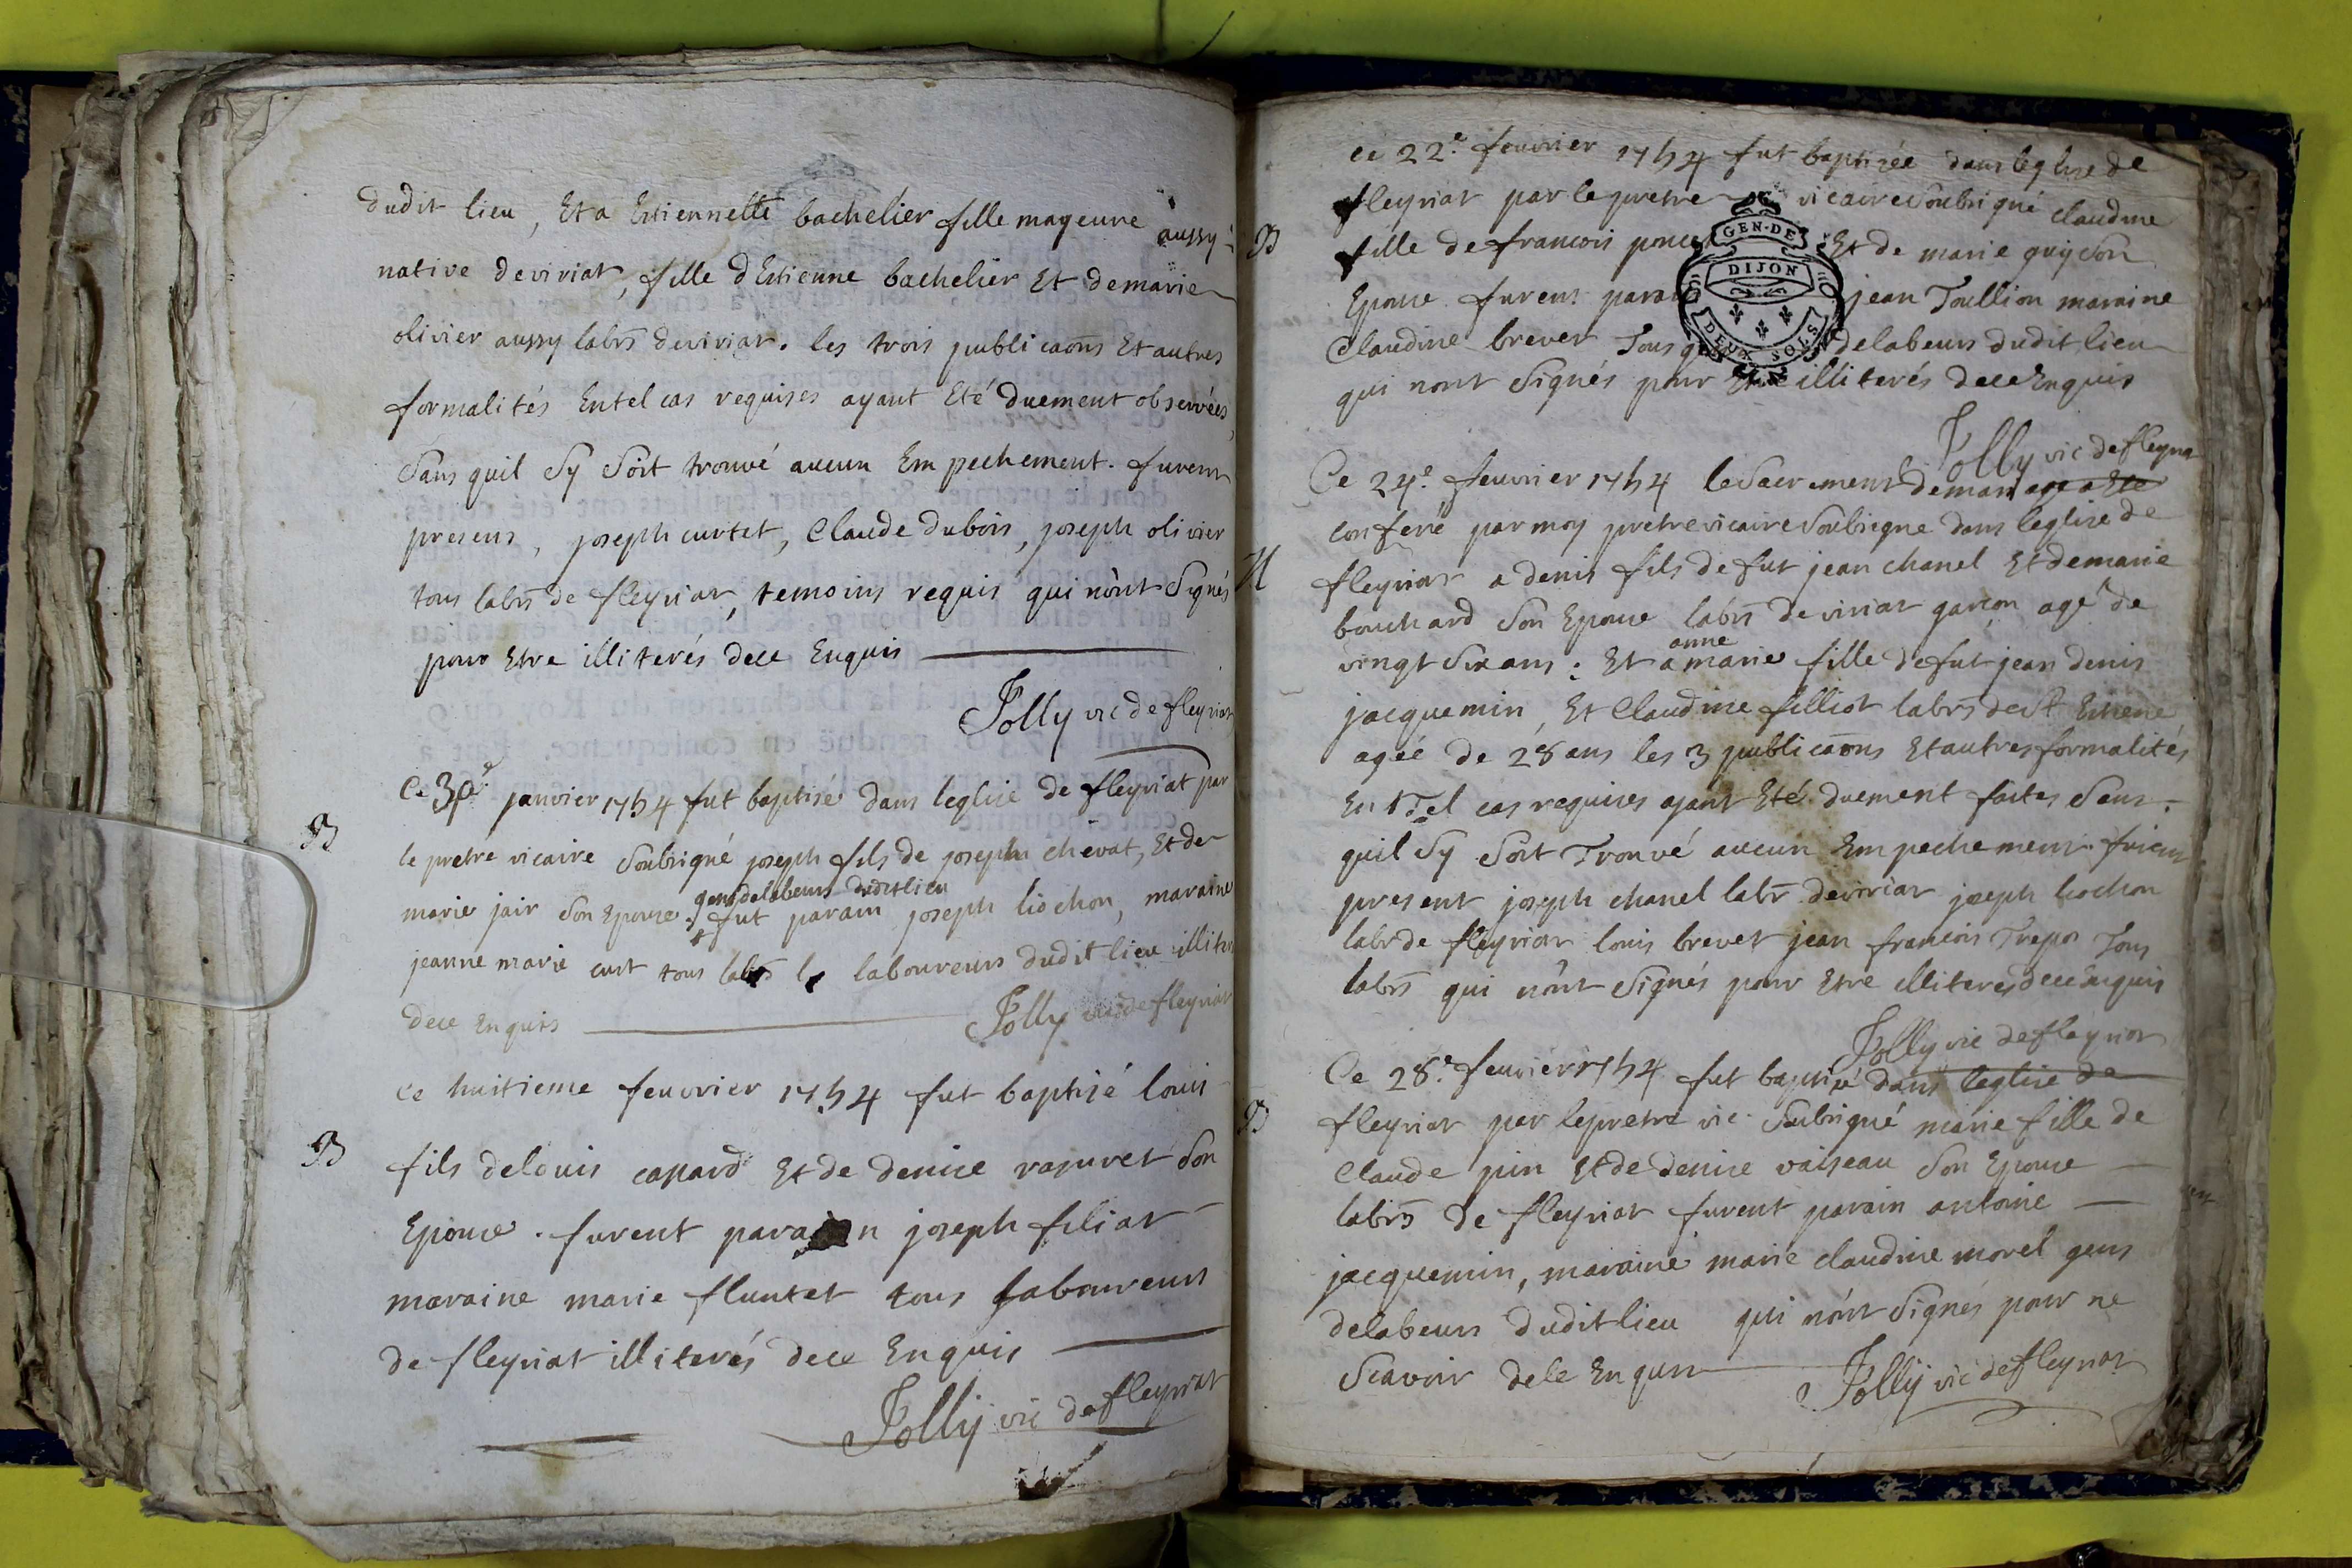 dudit lieu, Et a Estiennette bachelier fille mageure aussy
native deviriat, fille dEstienne bachelier Et demarie
olivier aussy labrs deviriat. les trois publicaons Et autres
formalités Entel cas requises ayant Eté duement observées,
Sans quil Sy Soit trouvé aucun Empechement. furent
presens, joseph curtet, Claude dubois, joseph olivier
tous labrs de fleyriat, temoins requis qui nònt Signés
pour Etre illiterés dece Enquis
Jolly vic de fleyriat
B
Ce 30e janvier 1754 fut baptisé dans leglise de fleyriat par
le pretre vicaire Soubsigné joseph fils de joseph chevat, Et de
gens delabeurs dudit lieu
marie jair Son Epouse. fut parain joseph liochon, maraine
jeanne marie curt tous labrs laboureurs dudit lieu illiter
dece Enquis Jolly vic de fleyriat
ce huitieme feuvrier 1754 fut baptisé louis
B
fils delouis capard Et de denise rasuret Son
Epouse. furent parain joseph filiat
maraine marie fluutet tous laboureurs
de fleyriat illiterés dece Enquis
Jolly vic de fleyriat
ce 22e. feuvrier 1754 fut baptisée dans leglise de
fleyriat par le pretre vicaire Soubsigné claudine
B
fille de francois Et de marie guy Son
GEN·DE
DIJON
DEUX SOLS
Epouse furent jean Toullion maraine
Claudine brevet Tous delabeurs dudit lieu
qui nont Signés pour Etre illiterés dece Enquis
Jolly vic de fleyriat
Ce 24e. feuvrier 1754 leSacrement demariage a Eté
conferé par moy pretre vicaire Soubsigne dans leglise de
M
fleyriat a denis fils de fut jean chanel Et demarie
bouchard Son Epouse labrs de viriat garçon agé de
anne
vingt Six ans; Et a marie fille defut jean denis
jacquemin, Et Claudine filliot labrs de St Etiene
agée de 28 ans les 3 publicaons Et autres formalités
En Tel cas requises ayant Eté duement faites Sans
quil Sy Soit Trouvé aucun Empechement. furent
present joseph chanel labr deviriat joseph liochon
labr de fleyriat louis brevet jean francois Trepo Tous
labrs qui nònt Signés pour Etre illiterés dece Enquis
Jolly vic de fleyriat
Ce 28e. feuvrier 1754 fut baptisé dans leglise de
B
fleyriat par lepretre vic Subsigné marie fille de
Claude pin Et de denise vaiseau Son Epouse
labrs de fleyriat furent parain antoine
jacquemin, maraine marie claudine morel gens
delabeurs dudit lieu qui nònt Signés pour ne
Scavoir dece Enquis Jolly vic de fleyriat